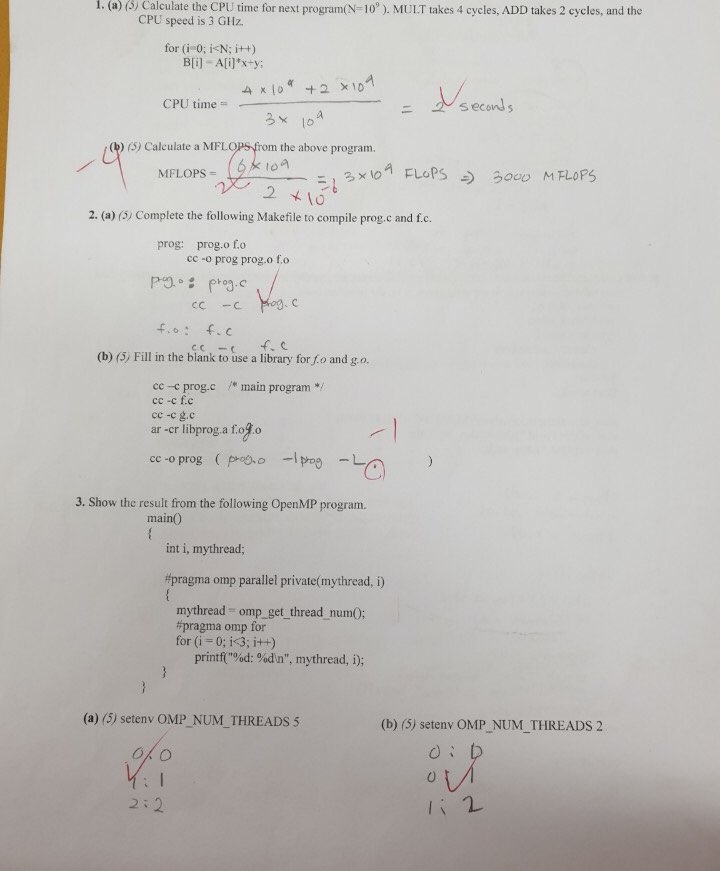 1. (a) (5) Calculate the CPU time for next program(N=10⁹ ). MULT takes 4 cycles, ADD takes 2 cycles, and the
CPU speed is 3 GHz.
for (i=0; i<N; i++)
B[i] = A[i]*x+y;
4 x 10⁹ + 2 x10⁹
CPU time =
3x 10⁹
= 2 seconds
(b) (5) Calculate a MFLOPS from the above program.
-4
MFLOPS = 6 x 10⁹ = 3x10⁹ FLOPS => 3000 MFLOPS
2
2 x 10⁻⁶
2. (a) (5) Complete the following Makefile to compile prog.c and f.c.
prog: prog.o f.o
cc -o prog prog.o f.o
prog.o: prog.c
cc -c prog.c
f.o: f.c
cc -c f.c
(b) (5) Fill in the blank to use a library for f.o and g.o.
cc –c prog.c /* main program */
cc -c f.c
cc -c g.c
ar -cr libprog.a f.o g.o
-1
cc -o prog ( prog.o -lprog -L. )
3. Show the result from the following OpenMP program.
main()
{
int i, mythread;
#pragma omp parallel private(mythread, i)
{
mythread = omp_get_thread_num();
#pragma omp for
for (i = 0; i<3; i++)
printf("%d: %d\n", mythread, i);
}
}
(a) (5) setenv OMP_NUM_THREADS 5
0:0
1:1
2:2
(b) (5) setenv OMP_NUM_THREADS 2
0:0
0:1
1:2